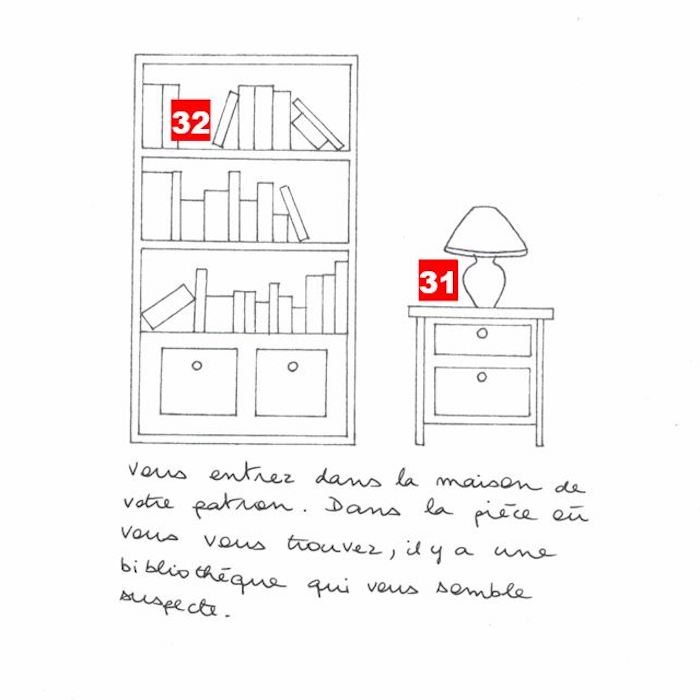 32
31
vous entrez dans la maison de
votre patron. Dans la pièce où
vous vous trouvez, il y a une
bibliothèque qui vous semble
suspecte.